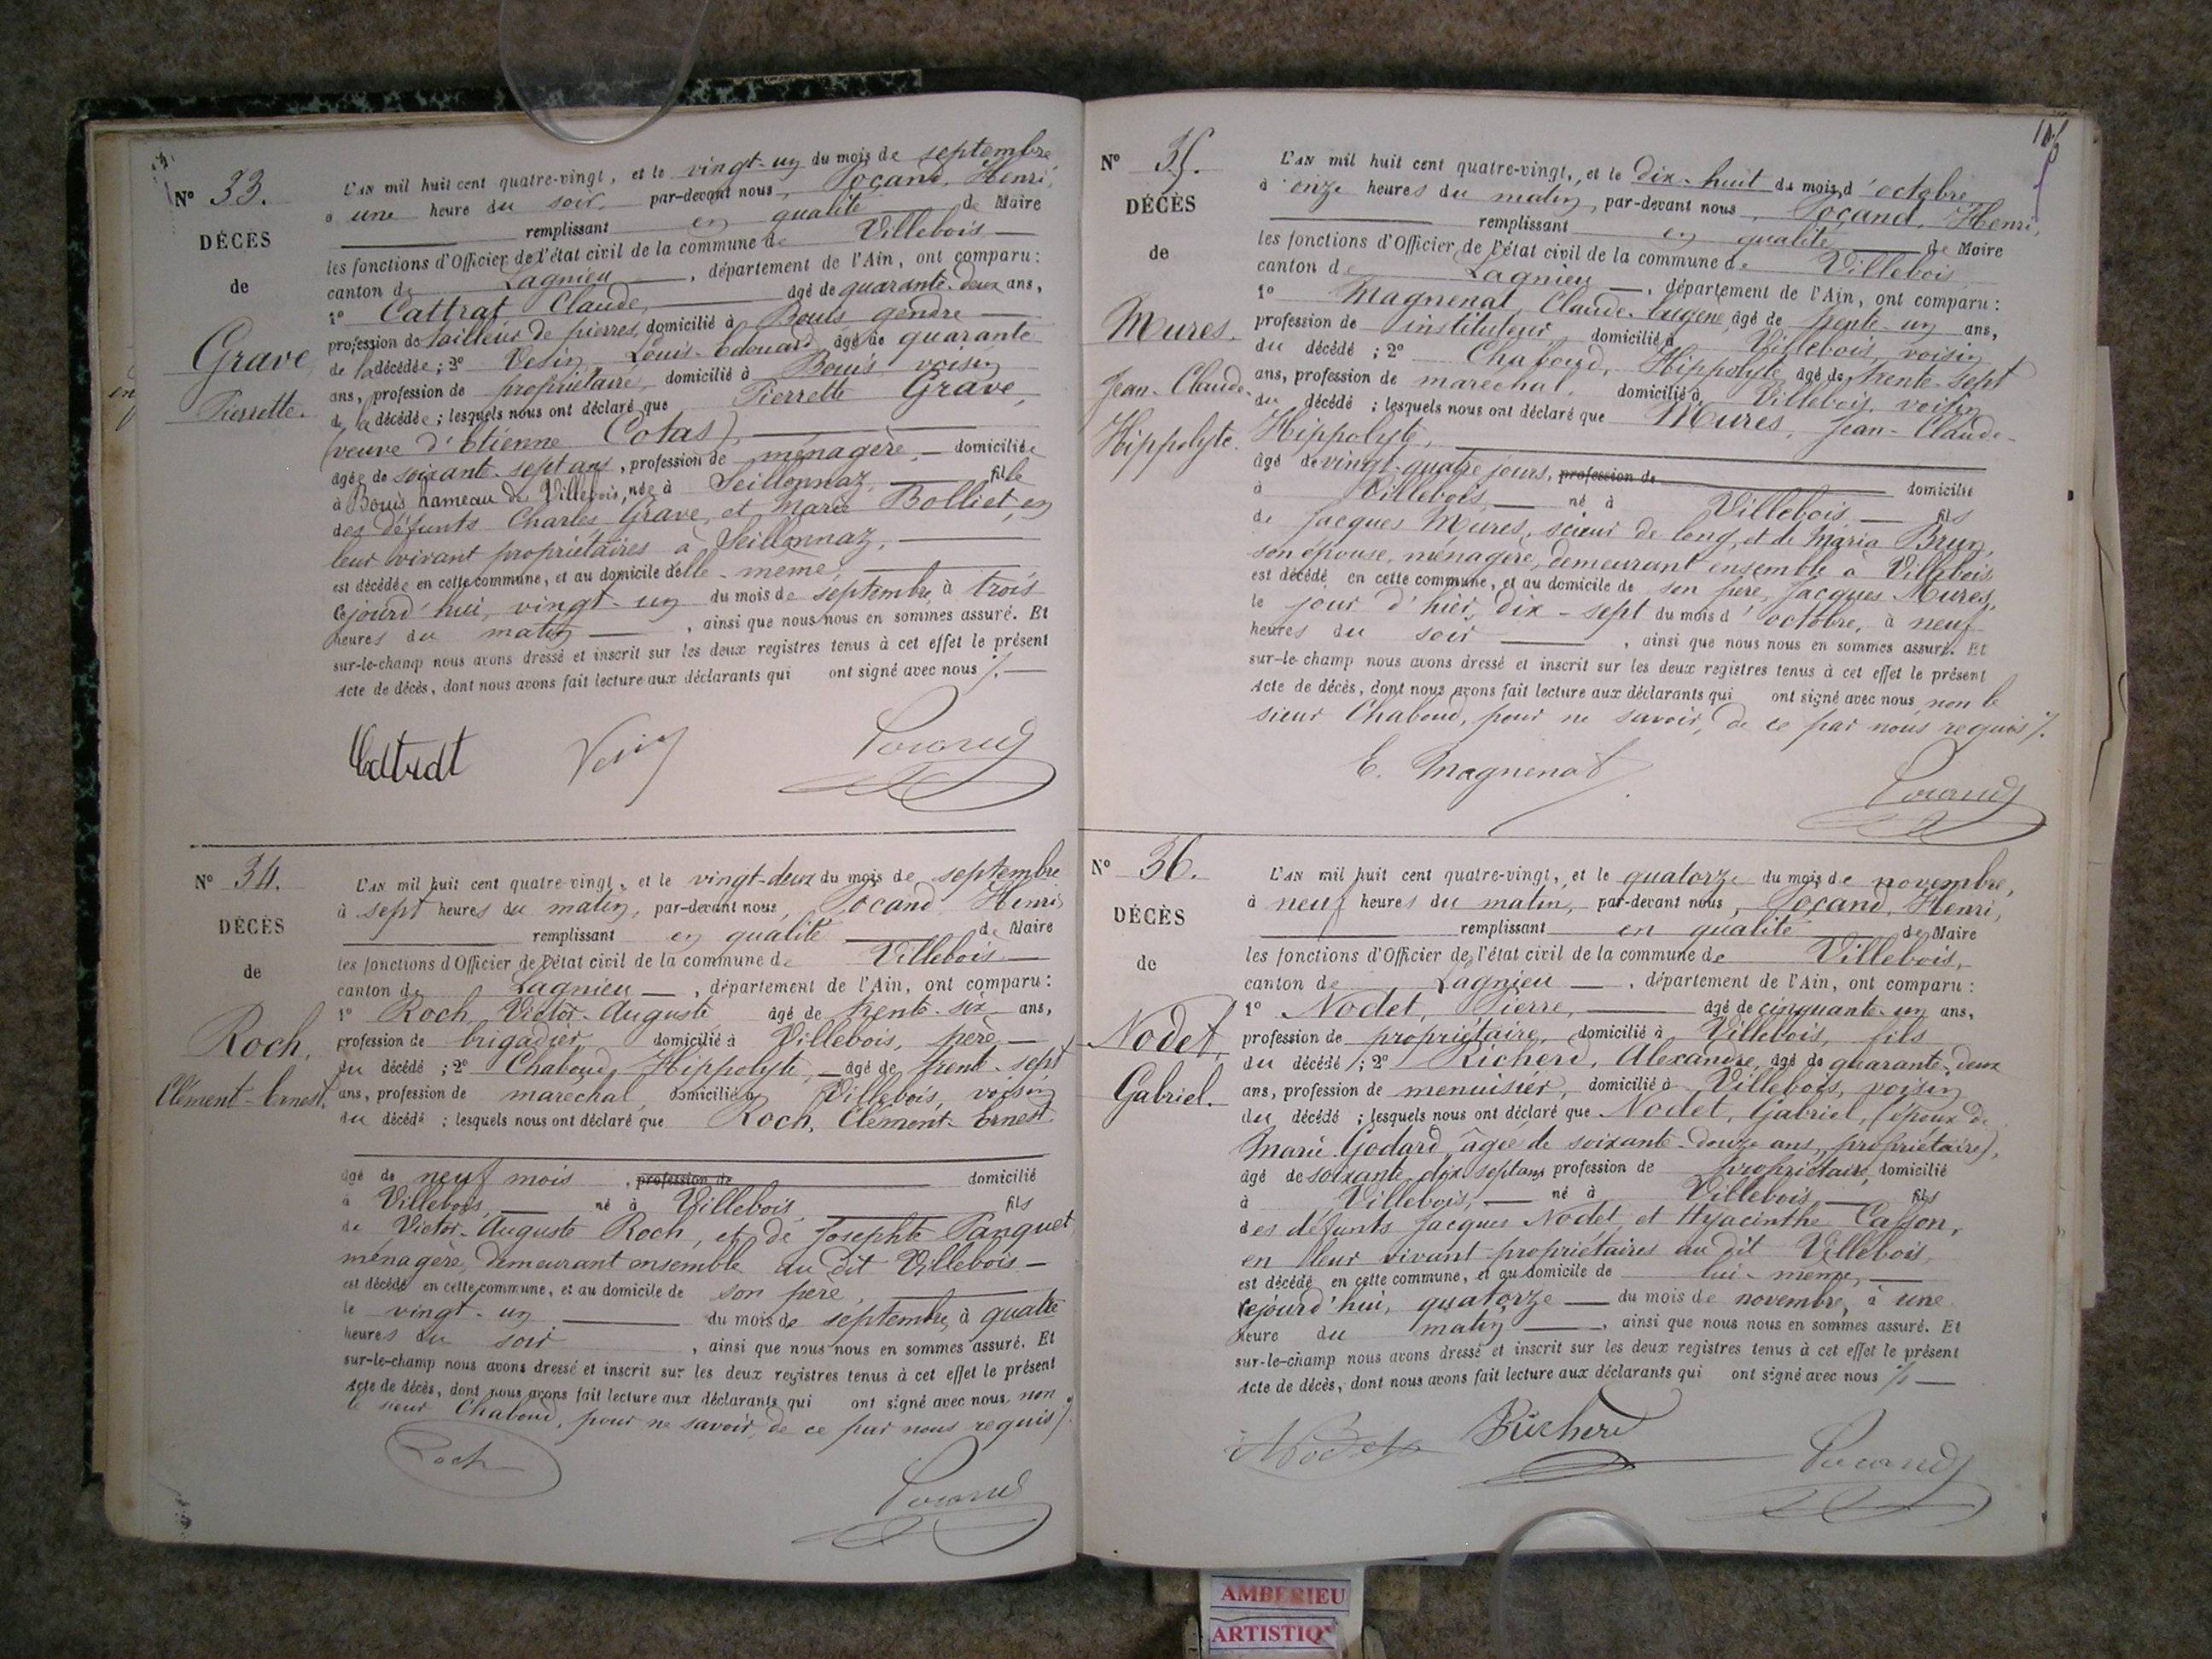 N° 33.
DÉCÈS
de
Grave
Pierrette.
L'AN mil huit cent quatre-vingt, et le vingt-un du mois de septembre
à une heure du soir, par-devant nous, Poçand, Henri,
remplissant en qualité de Maire
les fonctions d'Officier de l'état civil de la commune de Villebois
canton de Lagnieu, département de l'Ain, ont comparu:
1° Cattrat Claude, âgé de quarante-deux ans,
profession de tailleur de pierres, domicilié à Bouis gendre
de la décédée; 2° Vesin, Louis-Edouard âgé de quarante
ans, profession de propriétaire, domicilié à Bouis voisin
de la décédée; lesquels nous ont déclaré que Pierrette Grave,
(veuve d'Etienne Cotas),
âgée de soixante-sept ans, profession de ménagère, domiciliée
à Bouis hameau de Villebois, née à Seillonnaz, fille
des défunts Charles Grave, et Marie Bolliet, en
leur vivant propriétaires à Seillonnaz,
est décédée en cette commune, et au domicile d'elle-même,
cejourd'hui, vingt-un du mois de septembre, à trois
heures du matin, ainsi que nous nous en sommes assuré. Et
sur-le-champ nous avons dressé et inscrit sur les deux registres tenus à cet effet le présent
Acte de décès, dont nous avons fait lecture aux déclarants qui ont signé avec nous ./.
Cattrat Vesin Poçand
N° 34.
DÉCÈS
de
Roch,
Clément-Ernest.
L'AN mil huit cent quatre-vingt, et le vingt-deux du mois de septembre
à sept heures du matin, par-devant nous, Poçand Henri,
remplissant en qualité de Maire
les fonctions d'Officier de l'état civil de la commune de Villebois
canton de Lagnieu, département de l'Ain, ont comparu:
1° Roch, Victor-Auguste âgé de trente-six ans,
profession de brigadier, domicilié à Villebois, père
du décédé; 2° Chaboud, Hippolyte, âgé de trente-sept
ans, profession de maréchal, domicilié à Villebois, voisin
du décédé; lesquels nous ont déclaré que Roch, Clément-Ernest
âgé de neuf mois, profession de domicilié
à Villebois, né à Villebois, fils
de Victor-Auguste Roch, et de Josephte Panquet,
ménagère, demeurant ensemble au dit Villebois
est décédé en cette commune, et au domicile de son père,
le vingt-un du mois de septembre, à quatre
heures du soir, ainsi que nous nous en sommes assuré. Et
sur-le-champ nous avons dressé et inscrit sur les deux registres tenus à cet effet le présent
Acte de décès, dont nous avons fait lecture aux déclarants qui ont signé avec nous, non
le sieur Chaboud, pour ne savoir, de ce par nous requis ./.
Roch
Poçand
N° 35.
DÉCÈS
de
Mures,
Jean-Claude-
Hippolyte.
L'AN mil huit cent quatre-vingt, et le dix-huit du mois d'octobre,
à onze heures du matin, par-devant nous, Poçand, Henri,
remplissant en qualité de Maire
les fonctions d'Officier de l'état civil de la commune de Villebois
canton de Lagnieu, département de l'Ain, ont comparu:
1° Magnenat, Claude-Eugène, âgé de trente-un ans,
profession de instituteur, domicilié à Villebois, voisin
du décédé; 2° Chaboud, Hippolyte, âgé de trente-sept
ans, profession de maréchal, domicilié à Villebois, voisin
du décédé; lesquels nous ont déclaré que Mures, Jean-Claude-
Hippolyte,
âgé de vingt-quatre jours, profession de domicilié
à Villebois, né à Villebois, fils
de Jacques Mures, scieur de long, et de Maria Brun,
son épouse, ménagère, demeurant ensemble à Villebois
est décédé en cette commune, et au domicile de son père, Jacques Mures,
le jour d'hier, dix-sept du mois d'octobre, à neuf
heures du soir, ainsi que nous nous en sommes assuré. Et
sur-le-champ nous avons dressé et inscrit sur les deux registres tenus à cet effet le présent
Acte de décès, dont nous avons fait lecture aux déclarants qui ont signé avec nous, non le
sieur Chaboud, pour ne savoir, de ce par nous requis ./.
E. Magnenat
Poçand
N° 36.
DÉCÈS
de
Nodet,
Gabriel.
L'AN mil huit cent quatre-vingt, et le quatorze du mois de novembre,
à neuf heures du matin, par-devant nous, Poçand, Henri,
remplissant en qualité de Maire
les fonctions d'Officier de l'état civil de la commune de Villebois,
canton de Lagnieu, département de l'Ain, ont comparu:
1° Nodet, Pierre, âgé de cinquante-un ans,
profession de propriétaire, domicilié à Villebois, fils
du décédé; 2° Richerd, Alexandre, âgé de quarante-deux
ans, profession de menuisier, domicilié à Villebois, voisin
du décédé; lesquels nous ont déclaré que Nodet, Gabriel, (époux de
Marie Godard, âgée de soixante-douze ans, propriétaire),
âgé de soixante-dix-sept ans, profession de propriétaire, domicilié
à Villebois, né à Villebois, fils
des défunts Jacques Nodet, et Hyacinthe Casson,
en leur vivant propriétaires au dit Villebois,
est décédé en cette commune, et au domicile de lui-même,
cejourd'hui, quatorze du mois de novembre, à une
heure du matin, ainsi que nous nous en sommes assuré. Et
sur-le-champ nous avons dressé et inscrit sur les deux registres tenus à cet effet le présent
Acte de décès, dont nous avons fait lecture aux déclarants qui ont signé avec nous ./.
Nodet Richerd Poçand
AMBERIEU
ARTISTIQ